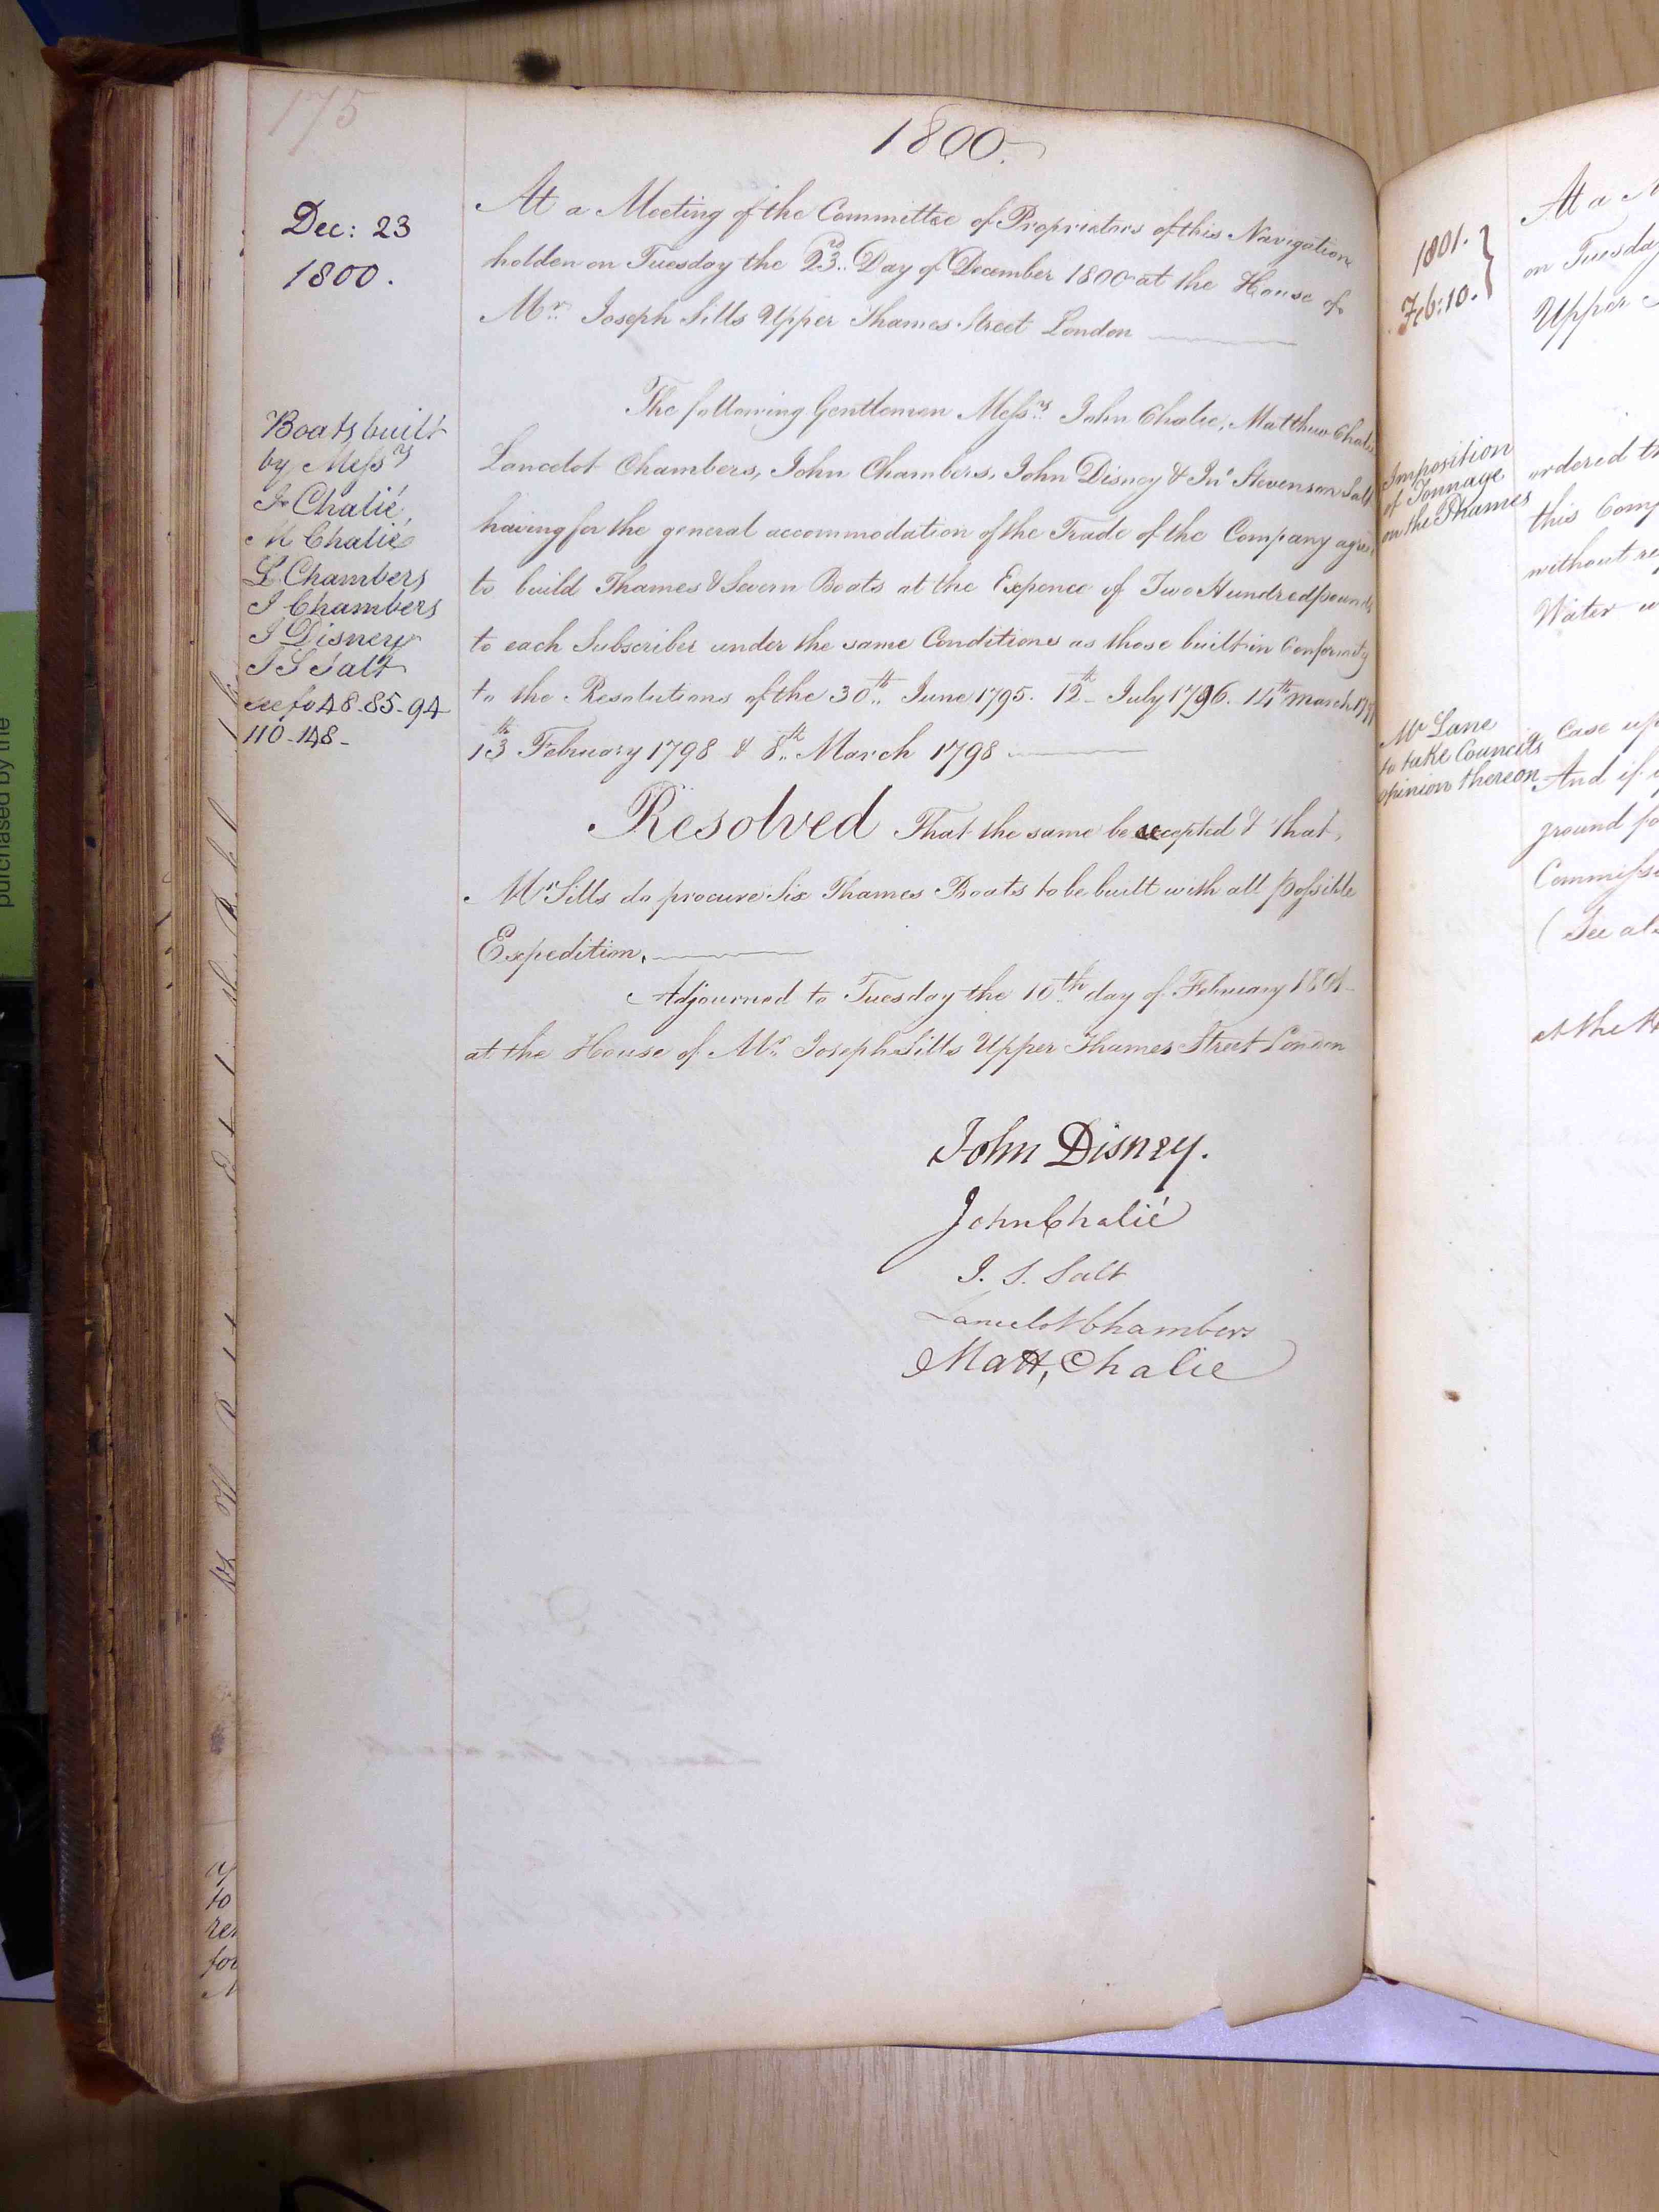 175
1800.
Dec: 23
1800.
At a Meeting of the Committee of Proprietors of this Navigation
holden on Tuesday the 23.. Day of December 1800 at the House of
Mr. Joseph Sills Upper Thames Street London
Boats built
by Messrs
J Chalié
M Chalié
L Chambers
J Chambers
J Disney
J S Salt
see fo 48-85-94
110-148-
The following Gentlemen Messrs. John Chalie, Matthew Chalie
Lancelot Chambers, John Chambers, John Disney & Jno Stevenson Salt
having for the general accommodation of the Trade of the Company agreed
to build Thames & Severn Boats at the Expence of Two Hundred pounds
to each Subscriber under the same Conditions as those built in Conformity
to the Resolutions of the 30th.. June 1795. 12th July 1796. 14th March
13th February 1798 & 8th.. March 1798
Resolved That the same be accepted & that
Mr Sills do procure Six Thames Boats to be built with all possible
Expedition.
Adjourned to Tuesday the 10th day of February 1801
at the House of Mr. Joseph Sills Upper Thames Street London
John Disney.
John Chalié
J. S. Salt
Lancelot Chambers
Matt, Chalie
1801.
Feb: 10.
At a
on Tuesday
Upper
Imposition
of Tonnage
on the Thames
ordered
this
without
Water
Mr Lane
to take Councils
opinion thereon
a Case
And if
ground
(See
at the
to
purchased by the